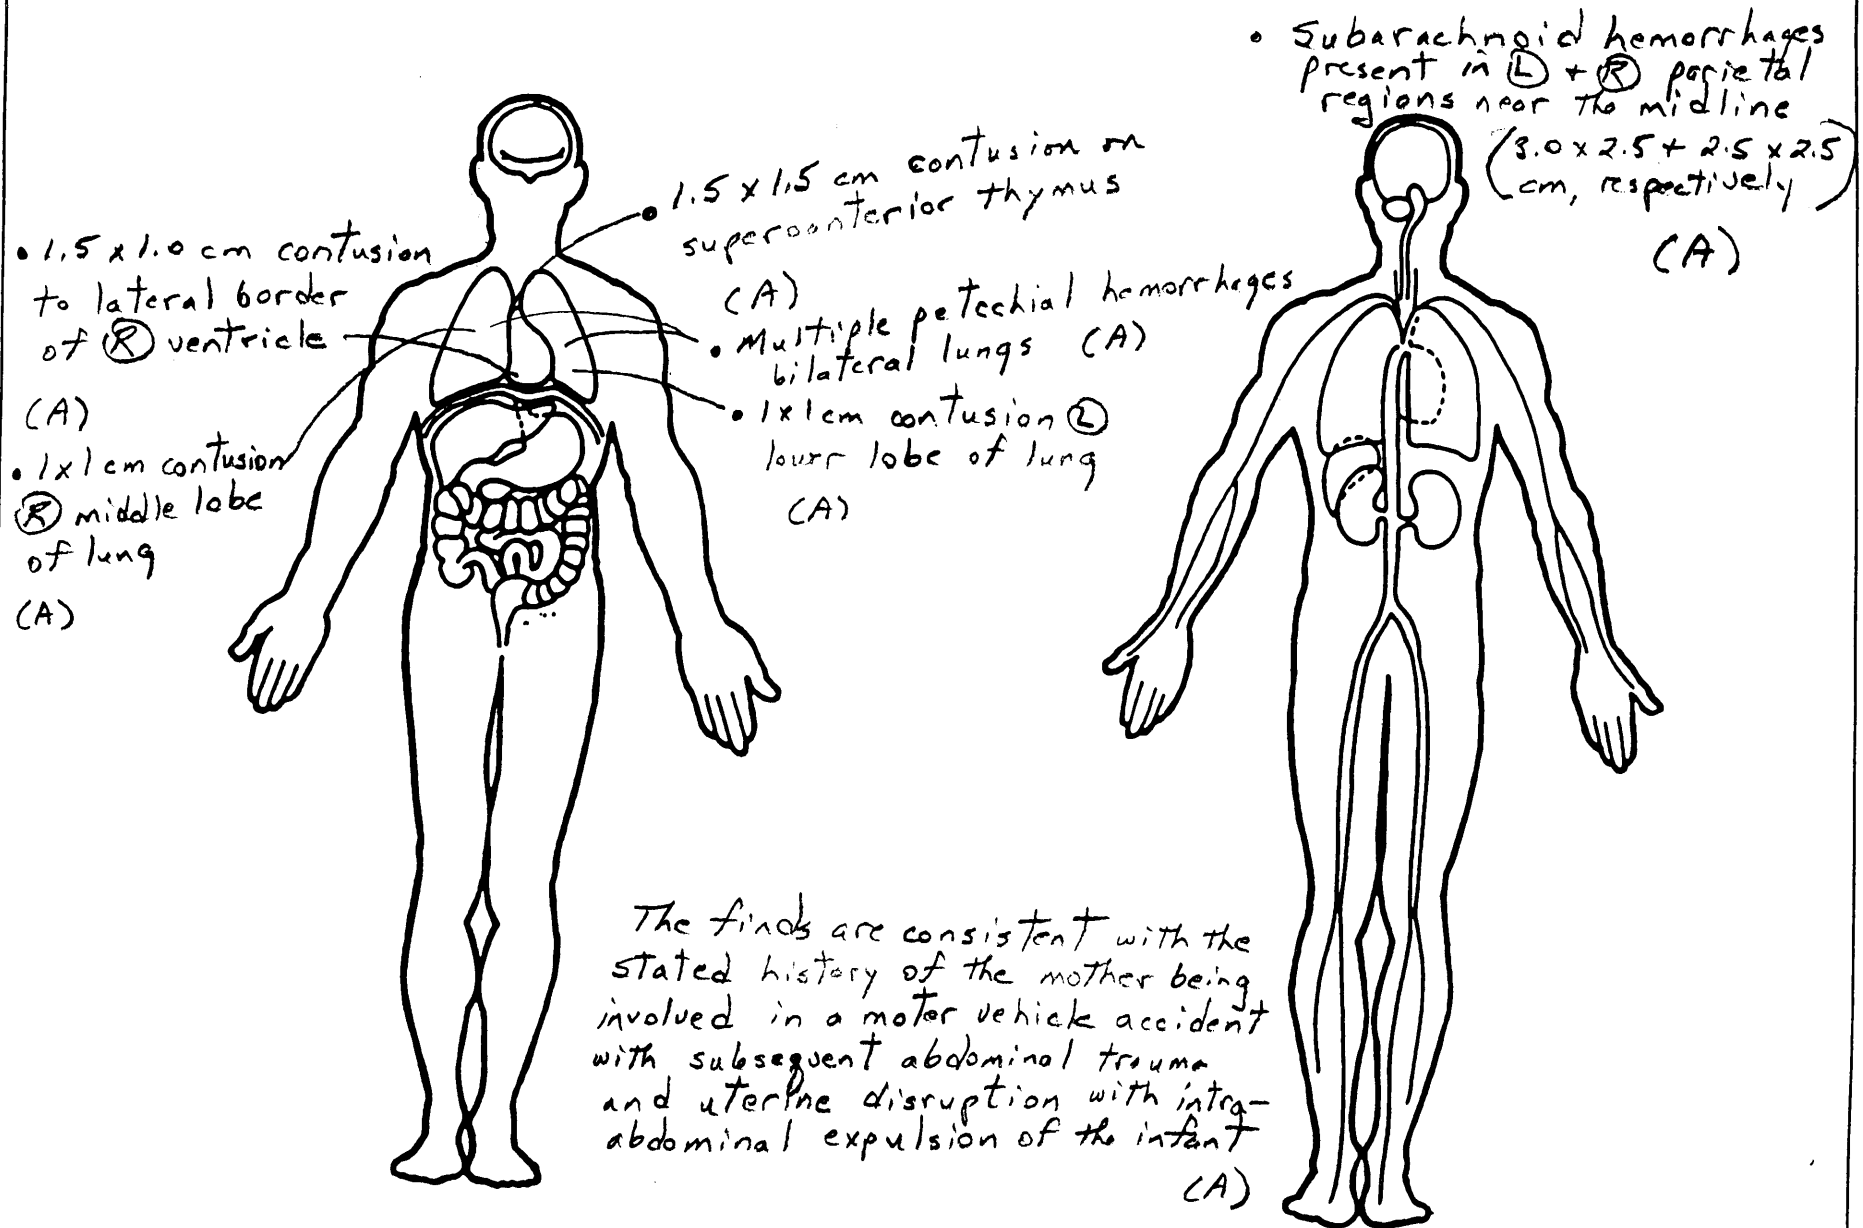 • 1.5 x 1.0 cm contusion
to lateral border
of Ⓡ ventricle
(A)
• 1x1cm contusion
Ⓡ middle lobe
of lung
(A)
• 1.5 x 1.5 cm contusion on
superoanterior thymus
(A)
• Multiple petechial hemorrhages
bilateral lungs (A)
• 1x1cm contusion Ⓛ
lowr lobe of lung
(A)
• Subarachnoid hemorrhages
present in Ⓛ + Ⓡ parietal
regions near the midline
(3.0 x 2.5 + 2.5 x 2.5
cm, respectively)
(A)
The finds are consistent with the
stated history of the mother being
involved in a motor vehicle accident
with subsequent abdominal trauma
and uterine disruption with intra-
abdominal expulsion of the infant
(A)